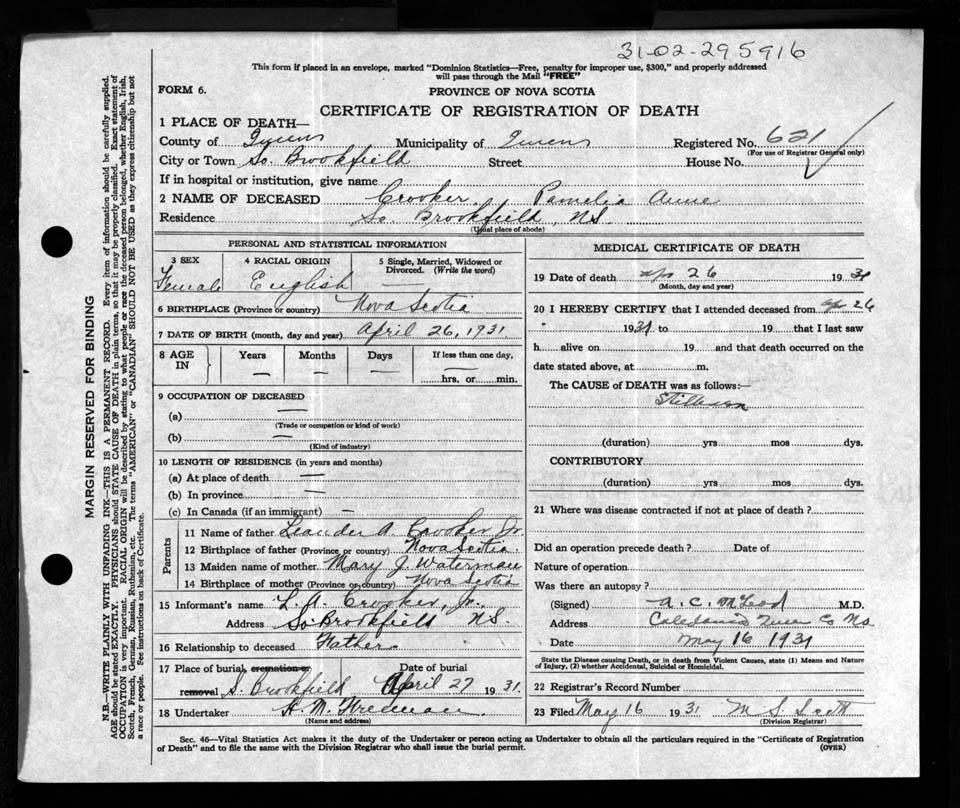 31-02-295916
This form if placed in an envelope, marked "Dominion Statistics—Free, penalty for improper use, $300," and properly addressed
will pass through the Mail "FREE"
FORM 6.
PROVINCE OF NOVA SCOTIA
CERTIFICATE OF REGISTRATION OF DEATH
1 PLACE OF DEATH—
County of Queens Municipality of Queens Registered No. 621
(For use of Registrar General only)
City or Town So. Brookfield Street House No.
If in hospital or institution, give name
2 NAME OF DECEASED Crooker Pamelia Anne
Residence So. Brookfield, NS.
(Usual place of abode)
PERSONAL AND STATISTICAL INFORMATION
3 SEX 4 RACIAL ORIGIN 5 Single, Married, Widowed or
Divorced. (Write the word)
Female English —
6 BIRTHPLACE (Province or country) Nova Scotia
7 DATE OF BIRTH (month, day and year) April 26, 1931
8 AGE Years Months Days If less than one day,
IN — — — hrs. or min.
9 OCCUPATION OF DECEASED
(a) —
(Trade or occupation or kind of work)
(b) —
(Kind of industry)
10 LENGTH OF RESIDENCE (in years and months)
(a) At place of death —
(b) In province —
(c) In Canada (if an immigrant) —
Parents
11 Name of father Leander A. Crooker Jr.
12 Birthplace of father (Province or country) Nova Scotia.
13 Maiden name of mother Mary J. Waterman
14 Birthplace of mother (Province or country) Nova Scotia
15 Informant's name L. A. Crooker, Jr.
Address So. Brookfield NS.
16 Relationship to deceased Father.
17 Place of burial, cremation or Date of burial
removal S. Brookfield April 27 1931.
18 Undertaker H. M. Freeman.
(Name and address)
MEDICAL CERTIFICATE OF DEATH
19 Date of death Apr 26 1931
(Month, day and year)
20 I HEREBY CERTIFY that I attended deceased from Apr 26
" 1931 to 19 that I last saw
h alive on 19 and that death occurred on the
date stated above, at m.
The CAUSE of DEATH was as follows:—
Stillborn
(duration) yrs mos dys.
CONTRIBUTORY
(duration) yrs mos dys.
21 Where was disease contracted if not at place of death?
Did an operation precede death? Date of
Nature of operation
Was there an autopsy?
(Signed) A. C. McLeod M.D.
Address Caledonia Queens Co NS
Date May 16 1931
State the Disease causing Death, or in death from Violent Causes, state (1) Means and Nature
of Injury, (2) whether Accidental, Suicidal or Homicidal.
22 Registrar's Record Number
23 Filed May 16 1931 M S Smith
(Division Registrar)
Sec. 46—Vital Statistics Act makes it the duty of the Undertaker or person acting as Undertaker to obtain all the particulars required in the "Certificate of Registration
of Death" and to file the same with the Division Registrar who shall issue the burial permit. (OVER)
MARGIN RESERVED FOR BINDING
N.B.—WRITE PLAINLY WITH UNFADING INK—THIS IS A PERMANENT RECORD. Every item of information should be carefully supplied.
AGE should be stated EXACTLY. PHYSICIANS should STATE CAUSE OF DEATH in plain terms, so that it may be properly classified. Exact statement of
OCCUPATION is very important. RACIAL ORIGIN will be described by stating to what people or race the deceased person belonged, whether English, Irish,
Scotch, French, German, Russian, Ruthenian, etc. The terms "AMERICAN" or "CANADIAN" SHOULD NOT BE USED as they express citizenship but not
a race or people. See instructions on back of Certificate.